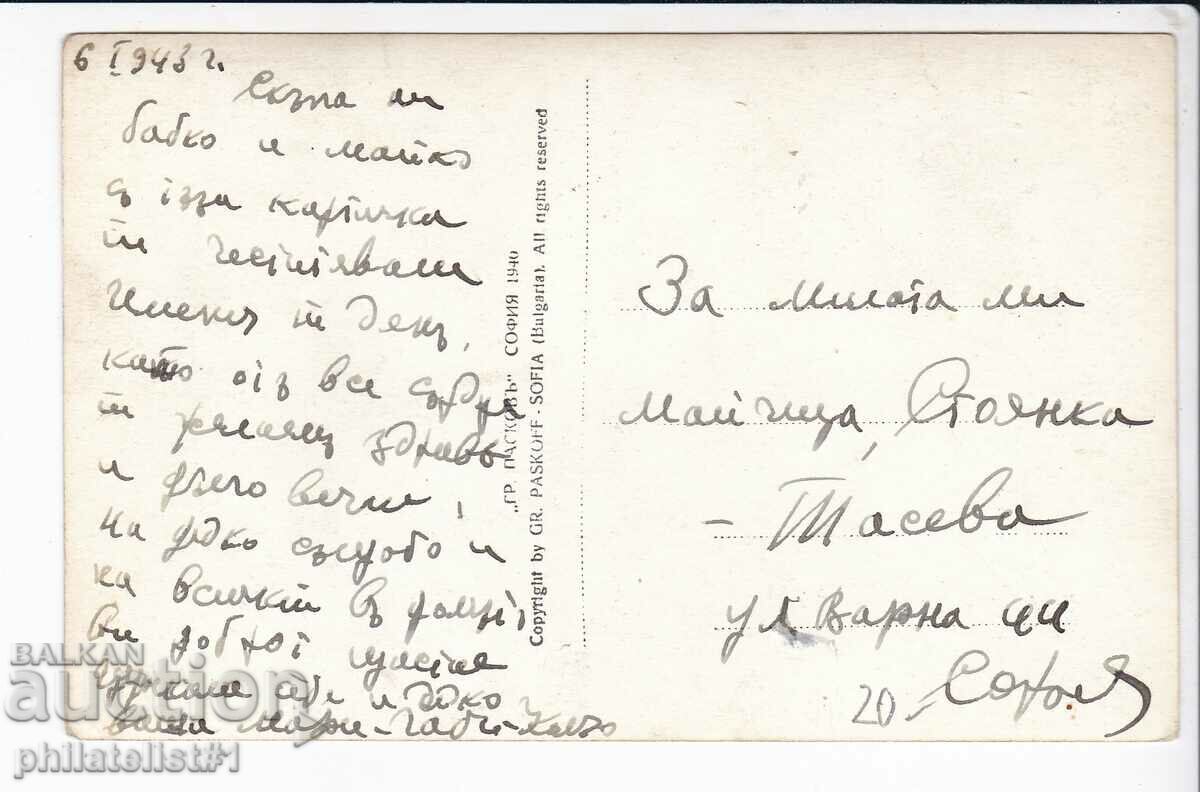 6 I 943 г.
Скъпа ми
бабко и майко
с тази картичка
ти честитявам
Имения ти Денъ,
като отъ все сърдце
ти желаяц здраве
и дълго вечие,
на дядко същото и
на всички въ
ви добро щастие
целувам тебе и дядко
ваша Мари - Габи -
„ГР. ПАСКОВЪ" СОФИЯ 1940
Copyright by GR. PASKOFF - SOFIA (Bulgaria). All rights reserved
За милата ми
майчица, Стоянка
- Тасева
ул Варна 44
София
20.-
BALKAN
auction
philatelist#1